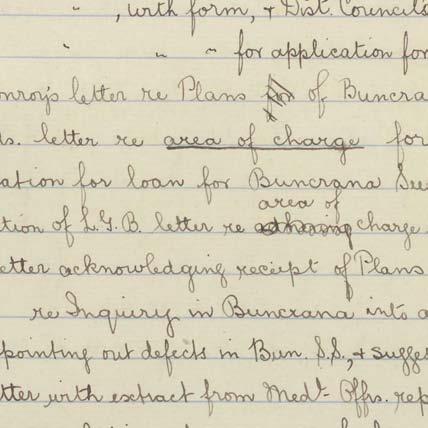 " , with form, & Dist. Councils
" " " for application for
onroy's letter re Plans of Buncra
ds. letter re area of charge for
ation for loan for Buncrana Sew
area of
tion of L.G.B. letter re charge
etter acknowledging receipt of Plans
re Inquiry in Buncrana into a
pointing out defects in Bun. S.S., & sugges
tter with extract from Medl. Offrs. rep